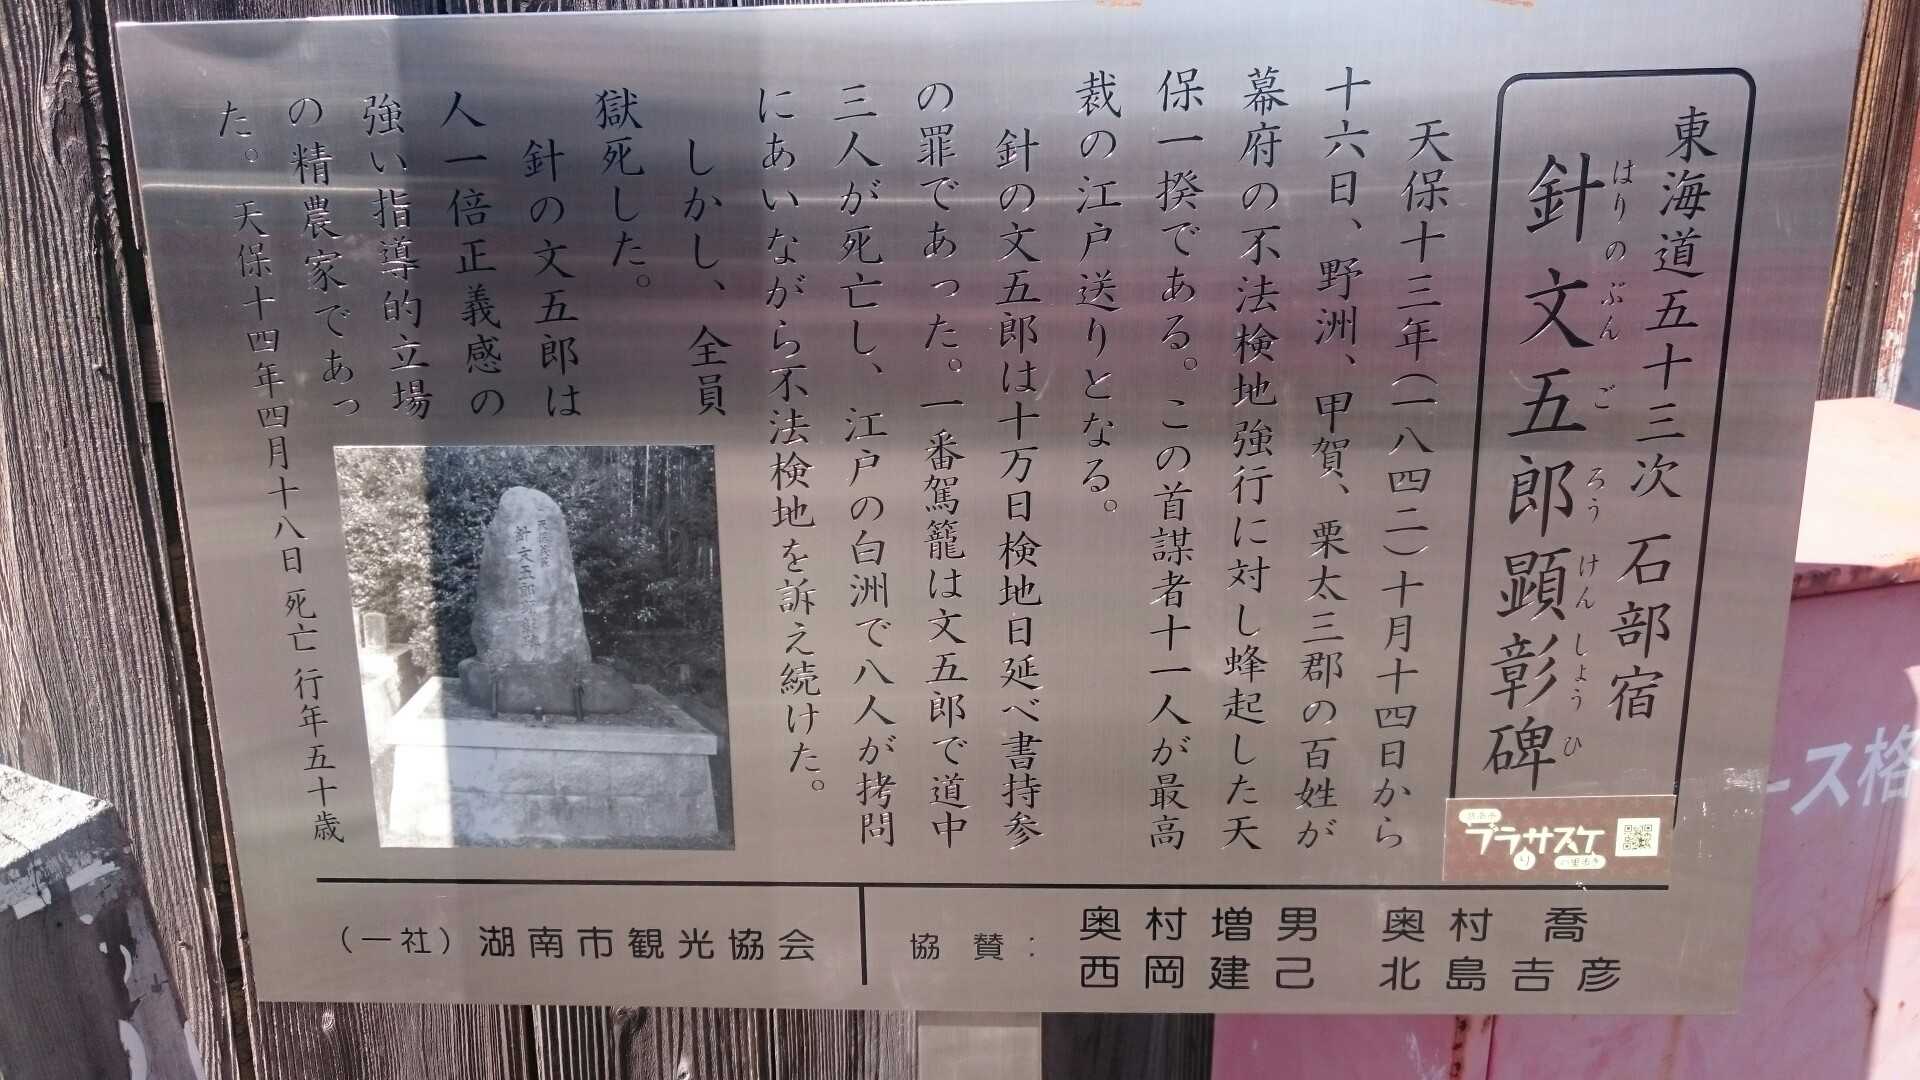 東海道五十三次 石部宿
針文五郎顕彰碑
はりのぶんごろうけんしょうひ
天保十三年(一八四二)十月十四日から
十六日、野洲、甲賀、栗太三郡の百姓が
幕府の不法検地強行に対し蜂起した天
保一揆である。この首謀者十一人が最高
裁の江戸送りとなる。
針の文五郎は十万日検地日延べ書持参
の罪であった。一番駕籠は文五郎で道中
三人が死亡し、江戸の白洲で八人が拷問
にあいながら不法検地を訴え続けた。
しかし、全員
獄死した。
針の文五郎は
人一倍正義感の
強い指導的立場
の精農家であっ
た。天保十四年四月十八日 死亡 行年五十歳
針文五郎
ブラサスケ
り
(一社)湖南市観光協会
協賛:
奥村増男 奥村 喬
西岡建己 北島吉彦
ース格